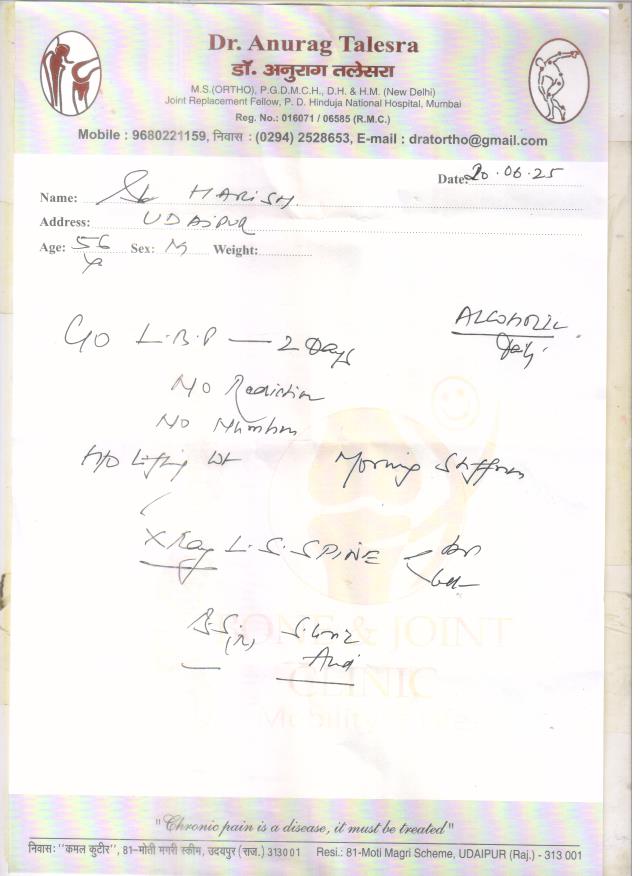 Dr. Anurag Talesra
डॉ. अनुराग तलेसरा
M.S.(ORTHO), P.G.D.M.C.H., D.H. & H.M. (New Delhi)
Joint Replacement Fellow, P. D. Hinduja National Hospital, Mumbai
Reg. No.: 016071 / 06585 (R.M.C.)
Mobile : 9680221159, निवास : (0294) 2528653, E-mail : dratortho@gmail.com
Date: 20.06.25
Name: HARISH
Address: UDAIPUR
Age: 56 Sex: M Weight:
ALCOHOLIC
C/O L.B.P — 2 Days
No Radiation
No Numbness
H/O Lifting Wt Morning Stiffness
X Ray L.S. SPINE
ONE & JOINT
CLINIC
Mobility
"Chronic pain is a disease, it must be treated"
निवास: "कमल कुटीर", 81-मोती मगरी स्कीम, उदयपुर (राज.) 313001 Resi.: 81-Moti Magri Scheme, UDAIPUR (Raj.) - 313 001